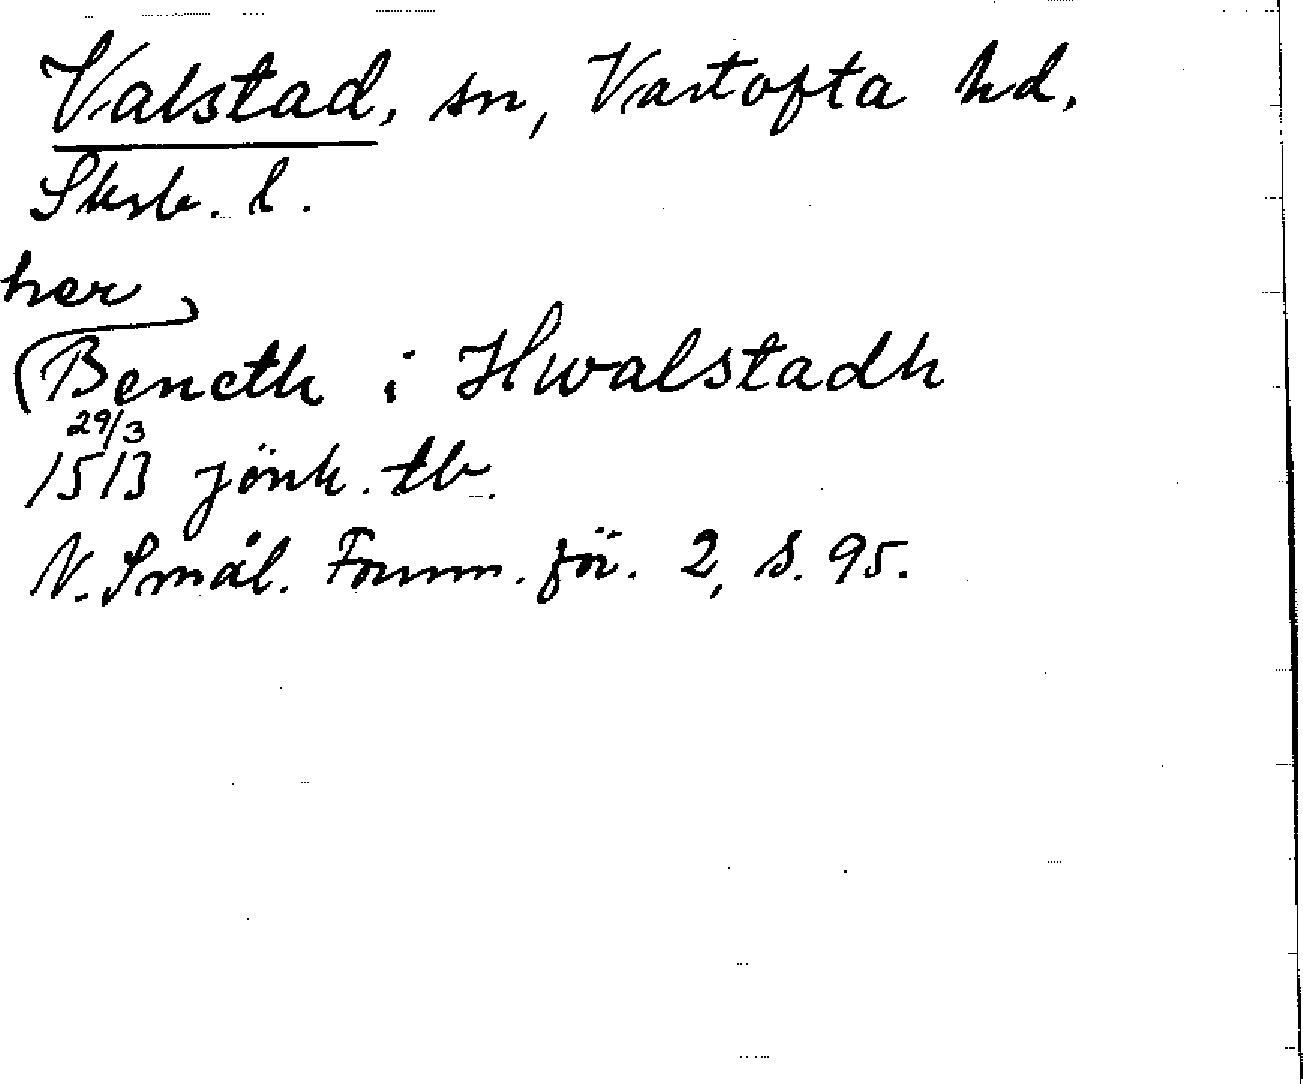 Valstad, sn, Vartofta hd,
Skrb. l.
her
Bencth i Hwalstadh
29/3
1513 jönk. tb.
N. Smål. Fornm. för. 2, s. 95.